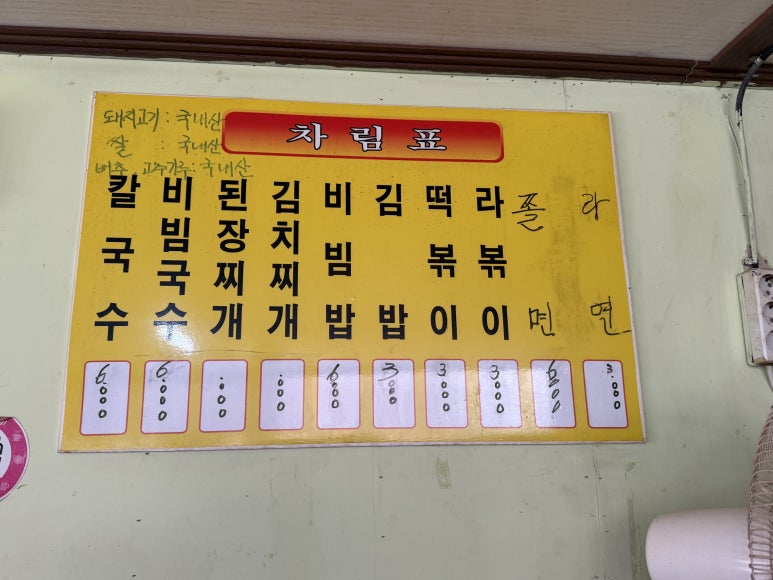 차림표
돼지고기 : 국내산
쌀 : 국내산
배추, 고추가루 : 국내산
칼국수
비빔국수
된장찌개
김치찌개
비빔밥
김밥
떡볶이
라볶이
쫄면
라면
6.000
6.000
.000
.000
6.000
3000
3.000
3.000
6.000
3.000